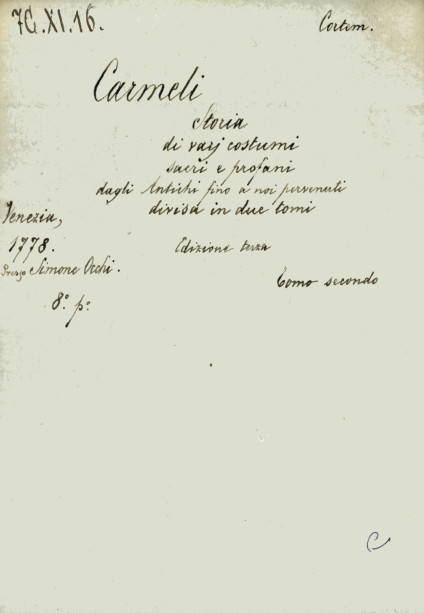 7G.XI.16.
Costum.
Carmeli
Storia
di varj costumi
sacri e profani
dagli Antichi fino a noi pervenuti
divisa in due tomi
Venezia,
1778.
Edizione terza
Presso Simone Occhi.
Tomo secondo
8.° p.°
C